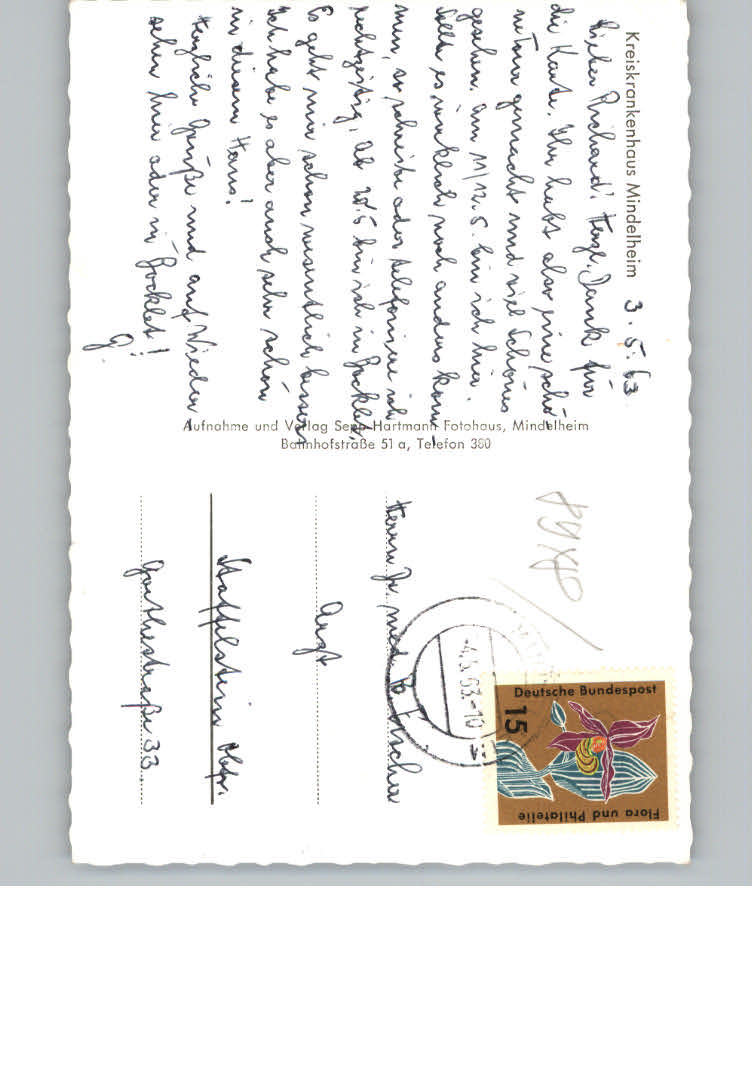 Kreiskrankenhaus Mindelheim
3.5.63.
Lieber Richard! Herzl. Dank für
die Karte. Ihr habt also eine schö-
ne Tour gemacht und viel Schönes
gesehen. Am 11/12.5. bin ich hier.
Sollte es wirklich noch anders kom-
men, so schreibe oder telefoniere ich
rechtzeitig. Ab 20.5 bin ich in Bocklet.
Es geht mir schon wesentlich besser,
ich habe es aber auch sehr schön
in diesem Haus!
Herzliche Grüße und auf Wieder
sehen hier oder in Bocklet!
G.
Aufnahme und Verlag Sepp Hartmann Fotohaus, Mindelheim
Bahnhofstraße 51 a, Telefon 380
Herrn Dr. med. R.
Arzt
Staffelstein Ofr.
Goethestraße 33
-4.5.63.-10
Deutsche Bundespost
15
Flora und Philatelie